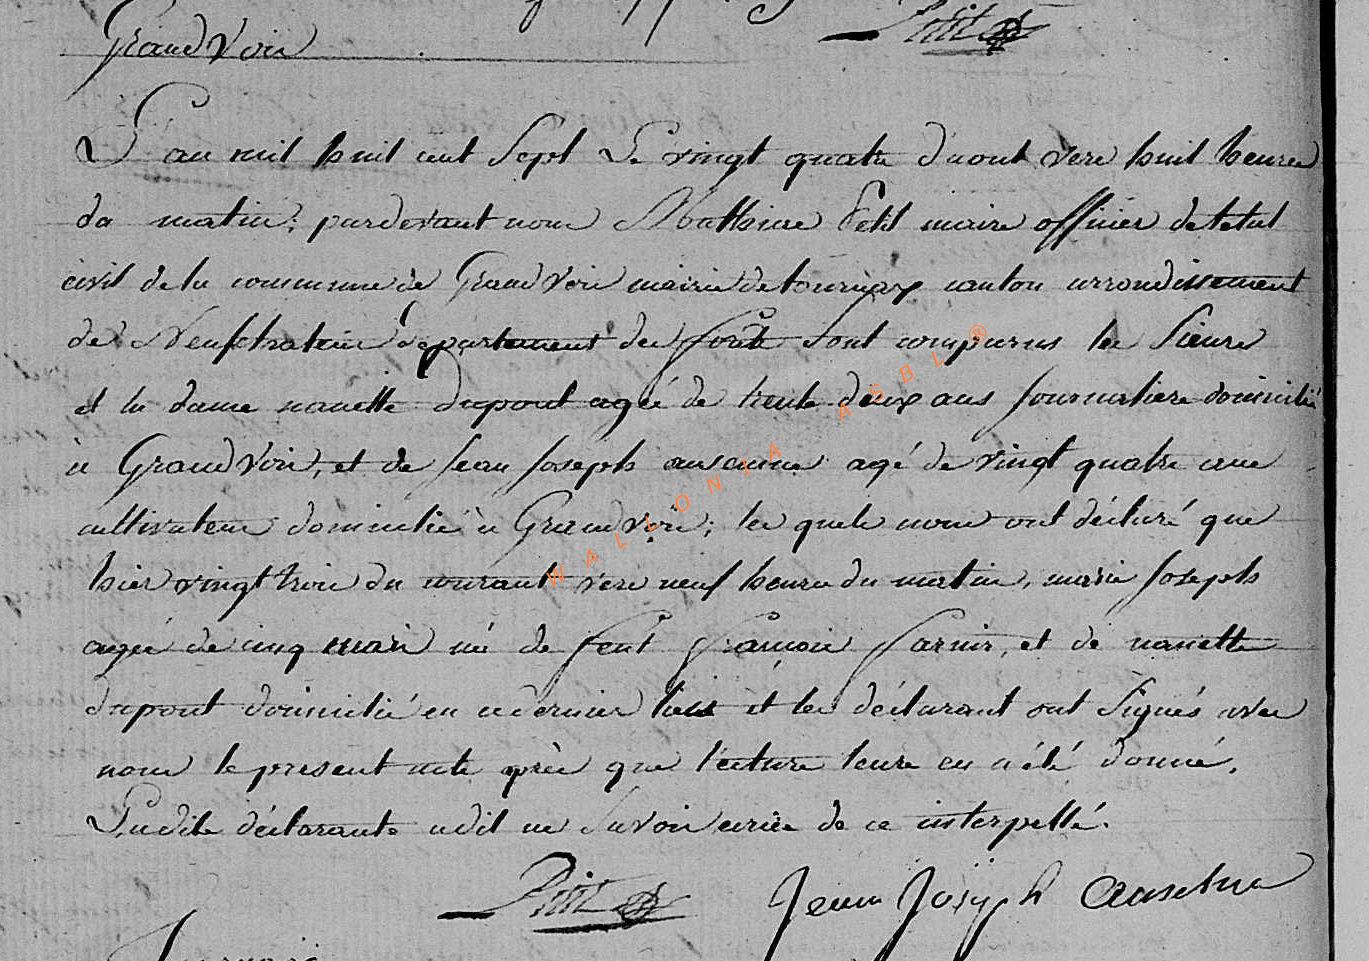 Petit
Grandvoir
L'an mil huit cent Sept Le vingt quatre d'aout vers huit heures
du matin; pardevant nous Mathieu Petit maire officier de letat
civil de la commune de Grandvoir mairie de tournay canton arrondissement
de Neufchateau departement des forêts Sont comparus les Sieurs
et la dame nanette dupont agée de trente deux ans journaliere domicilié
à Grandvoir, et de jean joseph anseaume agé de vingt quatre ans
cultivateur domicilié à Grandvoir; les quels nous ont déclaré que
hier vingt trois du courant vers neuf heures du matin, marie joseph
agée de cinq mois né de feut françois farnir, et de nanette
dupont domicilié en ce dernier lieu et les déclarant ont Signés avec
nous le present acte après que lecture leure en a été donné.
Ladite déclarante a dit ne Savoir écrire de ce interpellé.
Petit Jean Joseph Anselme
WALLONIA ASBL ®